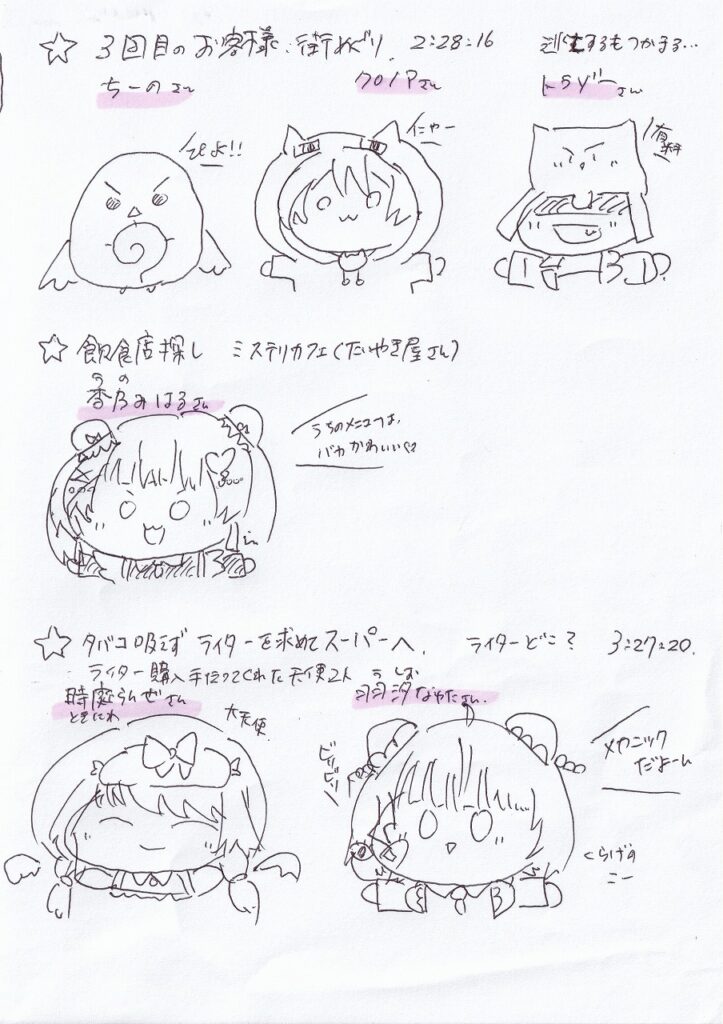 ☆ 3回目のお客様、街めぐり 2:28:16 逃走するもつかまる…
ちーのさん クロノアさん トラゾーさん
ぴよ!!
にゃー
有料
☆ 飲食店探し ミステリカフェ(たいやき屋さん)
の
香乃みはるさん
うちのメニューは、
バカかわいい
☆ タバコ吸えず ライターを求めてスーパーへ、 ライターどこ? 3:27:20.
ライター購入手伝ってくれた天使2人
うしお
時庭らんぜさん 羽汐なやたさん
ときにわ
大天使
ビリ
ビリ
メカニック
だよーん
くらげの
ミー